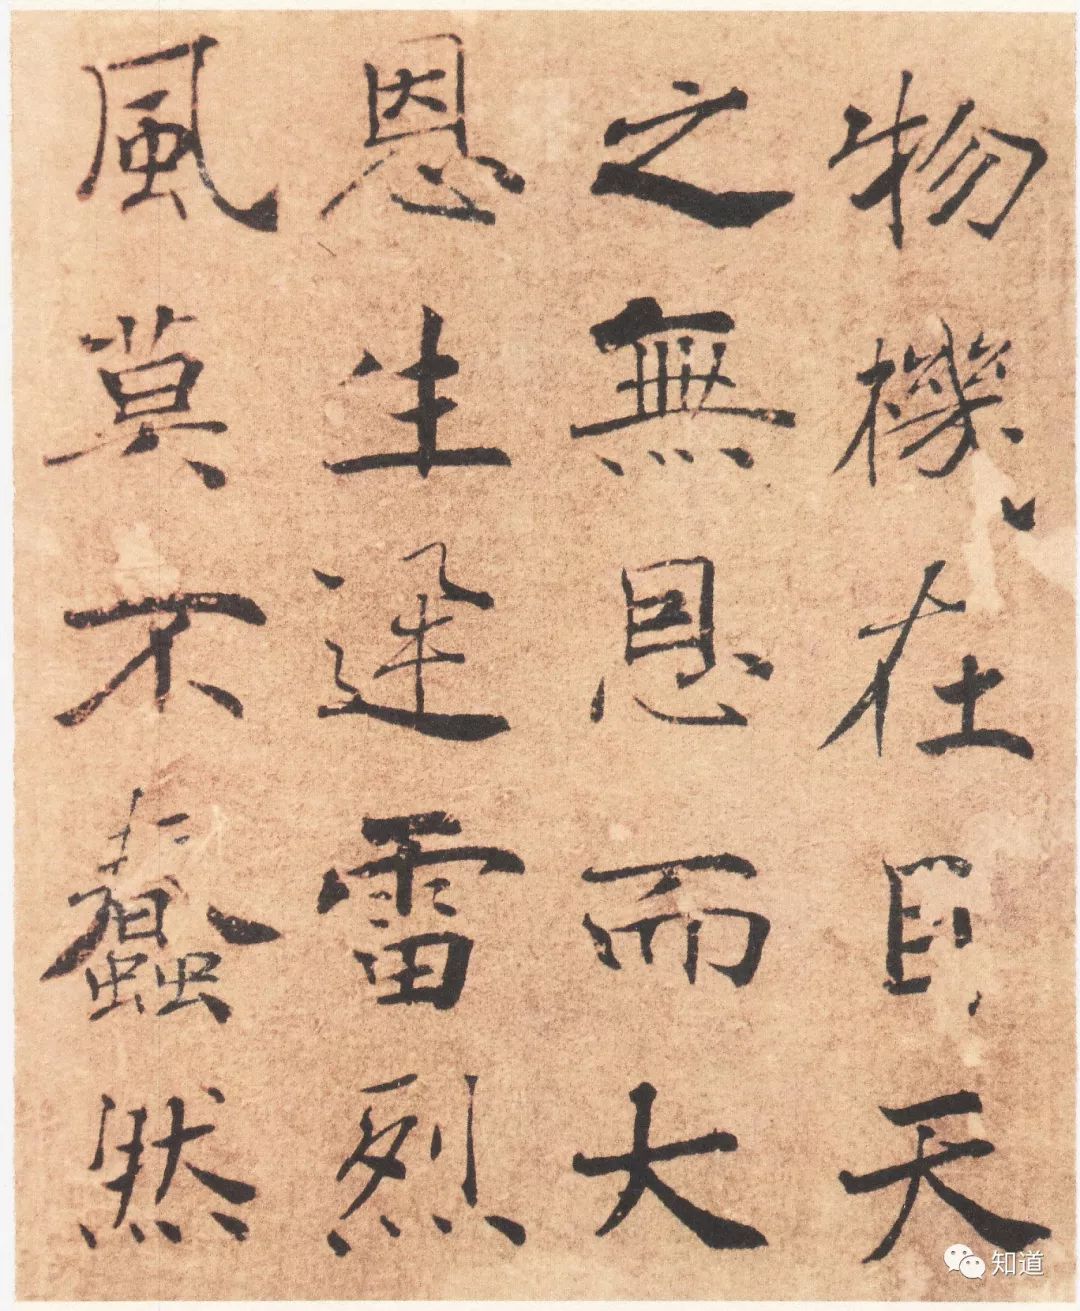 物機在目天
之無恩而大
恩生迅雷烈
風莫不蠢然
知道